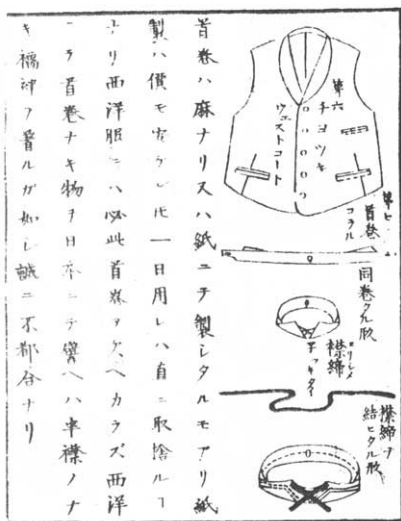 第六
チヨツキ
ウエストコート
第七
首巻
コラル
同巻タル形
ヱリシメ
襟締
子ッキタイ
襟締ヲ
結ヒタル形
首巻ハ麻ナリ又ハ紙ニテ製シタルモアリ紙
製ハ價モ安ケレ𪜈一日用レハ直ニ取捨ルヿ
ナリ西洋服ニハ必此首巻ヲカクヘカラズ西洋
ニテ首巻ナキ物ヲ日本ニテ譬ヘハ半襟ノナ
キ襦袢ヲ着ルガ如し誠ニ不都合ナリ